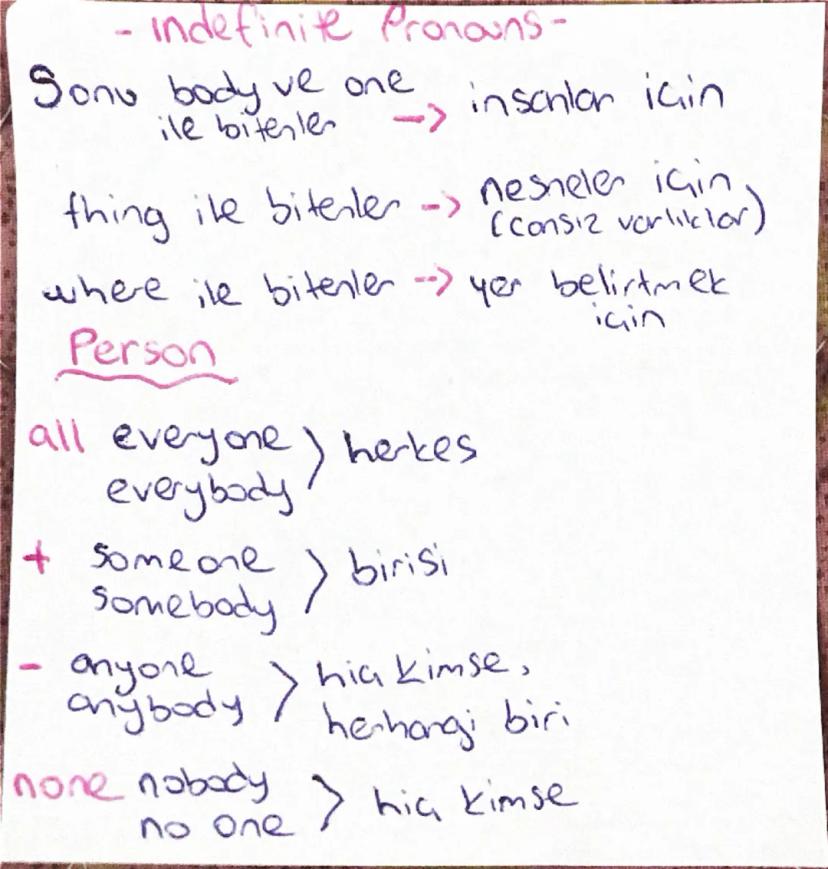 - Indefinite Pronouns -
Sonu body ve one → insanlar için
ile bitenler
thing ile bitenler → nesneler için
(cansız varlıklar)
where ile bitenler → yer belirtmek
için
Person
all everyone > herkes
everybody
+ someone > birisi
somebody
- anyone > hiç kimse,
anybody herhangi biri
none nobody > hiç kimse
no one